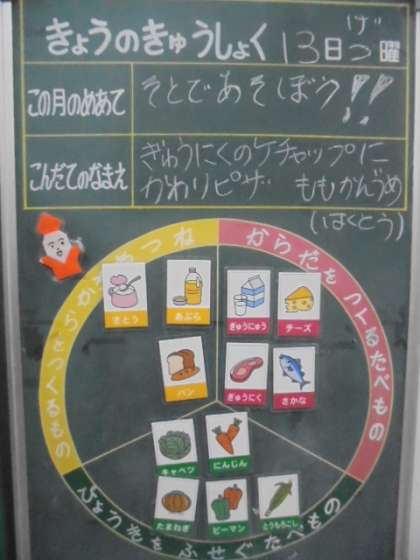 きょうのきゅうしょく 13日 げつ曜
この月のめあて
そとであそぼう!!
こんだてのなまえ
ぎゅうにくのケチャップに
かわりピザ ももかんづめ
(はくとう)
からだをつくるたべもの
さとう
あぶら
ぎゅうにゅう
チーズ
パン
ぎゅうにく
さかな
キャベツ
にんじん
たまねぎ
ピーマン
とうもろこし
びょうきをふせぐたべもの